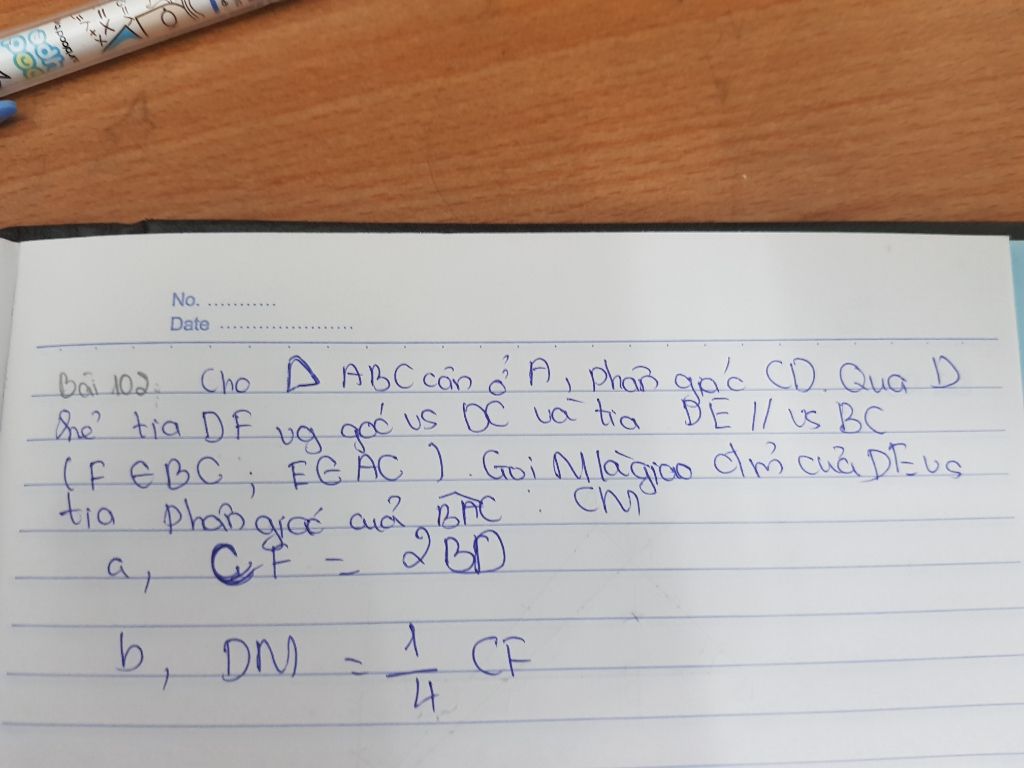 No. ...........
Date ......................
Bài 102: Cho Δ ABC cân ở A, phân giác CD. Qua D
kẻ tia DF vg góc vs DC và tia DE // vs BC
(F ∈ BC ; E ∈ AC). Gọi M là giao điểm của DE vs
tia phân giác của BAC : CM
a, CF = 2BD
b, DM = 1/4 CF